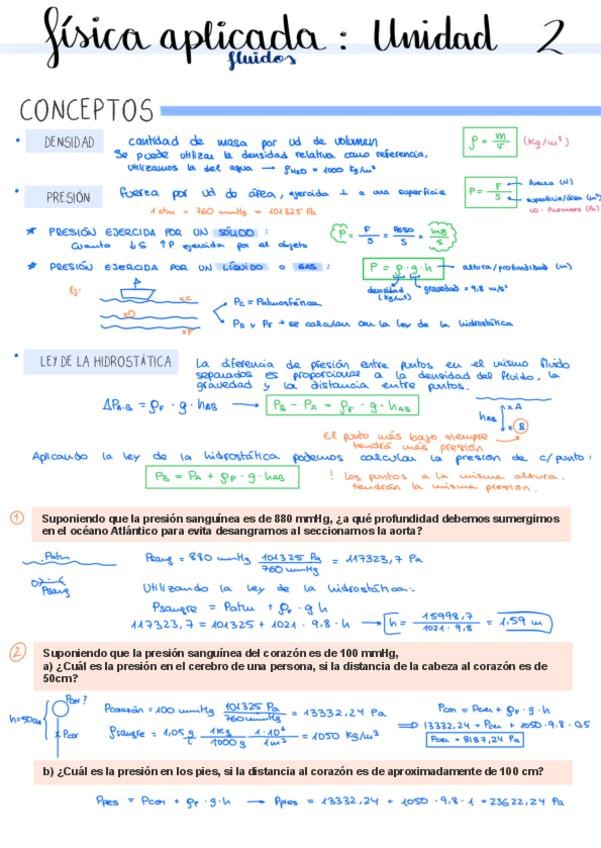 física aplicada: Unidad 2
fluidos
CONCEPTOS
• DENSIDAD cantidad de masa por ud de volumen
Se puede utilizar la densidad relativa como referencia,
utilizamos la del agua → ρH2O = 1000 kg/m³
ρ = m/v (kg/m³)
• PRESIÓN fuerza por ud de área, ejercida ⊥ a una superficie
1 atm = 760 mmHg = 101325 Pa
P = F/S → fuerza (N)
→ superficie/área (m²)
UD. PASCALES (Pa)
* PRESIÓN EJERCIDA POR UN SÓLIDO:
Cuanto ↓S ↑P ejercida por el objeto
P = F/S = PESO/S = mg/S
* PRESIÓN EJERCIDA POR UN LÍQUIDO o GAS:
P = ρ·g·h → altura/profundidad (m)
densidad (kg/m³)
gravedad = 9,8 m/s²
Ej:
P
xC
xD
xF
Pc = Patmosférica
PD y PF → se calculan con la ley de la hidrostática
• LEY DE LA HIDROSTÁTICA La diferencia de presión entre puntos en el mismo fluido
separados es proporcional a la densidad del fluido, la
gravedad y la distancia entre puntos.
ΔPA-B = ρF · g · hAB → PB - PA = ρF · g · hAB
hAB
x A
x B
el punto más bajo siempre
tendrá más presión
Aplicando la ley de la hidrostática podemos calcular la presión de c/punto:
PB = PA + ρF · g · hAB
! Los puntos a la misma altura,
tendrán la misma presión.
1 Suponiendo que la presión sanguínea es de 880 mmHg, ¿a qué profundidad debemos sumergirnos
en el océano Atlántico para evita desangrarnos al seccionarnos la aorta?
Patm
Psang
Psang = 880 mmHg 101325 Pa/760 mmHg = 117323,7 Pa
Utilizando la ley de la hidrostática:
Psangre = Patm + ρF · g h
117323,7 = 101325 + 1021 · 9,8 · h → h = 15998,7/1021 · 9,8 = 1,59 m
2 Suponiendo que la presión sanguínea del corazón es de 100 mmHg,
a) ¿Cuál es la presión en el cerebro de una persona, si la distancia de la cabeza al corazón es de
50cm?
h=50cm
Pcer?
Pcor
Pcorazón = 100 mmHg 101325 Pa/760 mmHg = 13332,24 Pa
ρsangre = 1,05 g 1kg/1000 g 1·10⁶/1m³ = 1050 kg/m³
Pcor = Pcer + ρF · g · h
⇒ 13332,24 = Pcer + 1050 · 9,8 · 0,5
Pcer = 8187,24 Pa
b) ¿Cuál es la presión en los pies, si la distancia al corazón es de aproximadamente de 100 cm?
Ppies = Pcor + ρF · g · h → Ppies = 13332,24 + 1050 · 9,8 · 1 = 23622,24 Pa